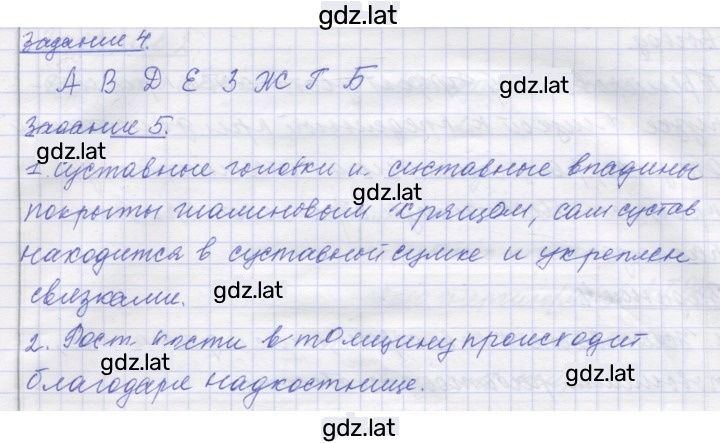 gdz.lat
Задание 4.
А В Д Е З Ж Г Б
gdz.lat
Задание 5.
gdz.lat
1. Суставные головки и суставные впадины
gdz.lat
покрыты гиалиновым хрящом, сам сустав
находится в суставной сумке и укреплен
связками.
gdz.lat
2. Рост кости в толщину происходит
gdz.lat
gdz.lat
благодаря надкостнице.
gdz.lat